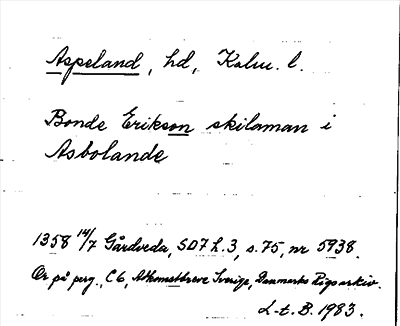 Aspeland, hd, Kalm. l.
Bonde Erikson skilaman i
Asbolande
1358 14/7 Gårdveda, SD7 h.3, s.75, nr 5938.
Or på perg., C6, Adkomstbreve Sverige, Danmarks Rigsarkiv.
L-t. B. 1983.